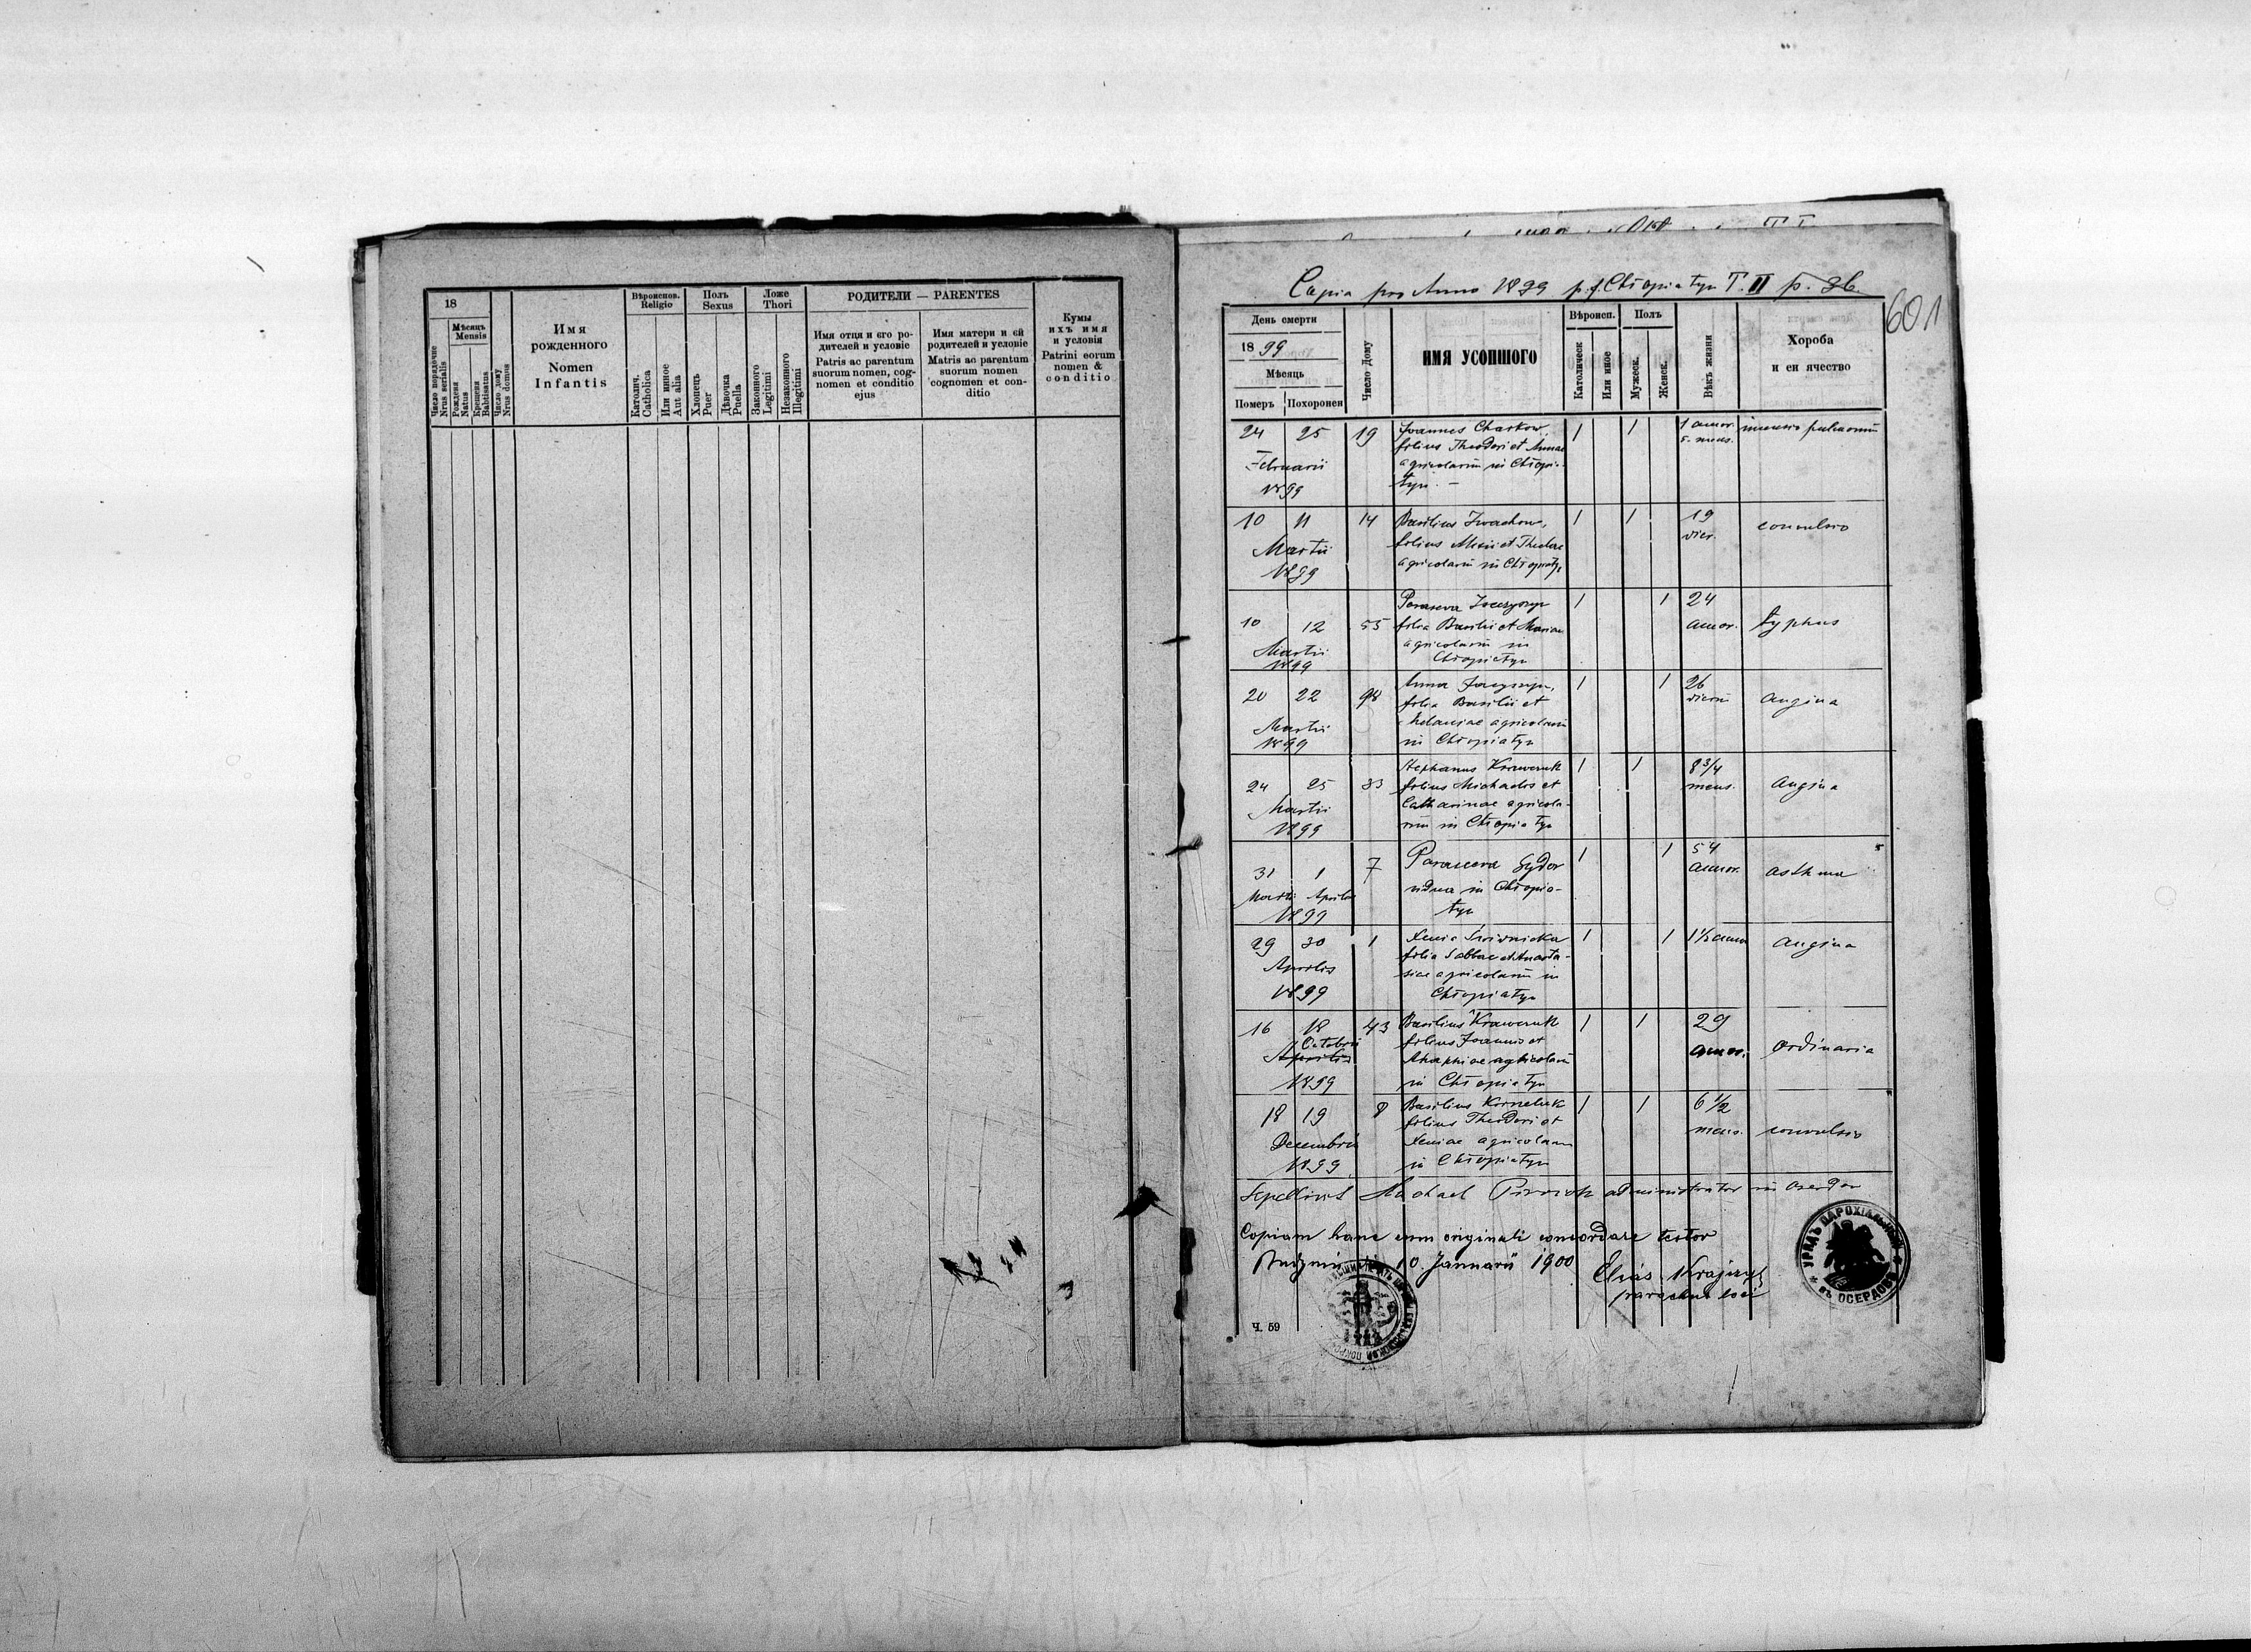 18
Мѣсяць
Mensis
Число порядочне
Nrus serialis
Рождення
Natus
Крещення
Babtisatus
Число дому
Nrus domus
Имя
рожденного
Nomen
Infantis
Вѣроиспов.
Religio
Католич.
Catholica
Или инное
Aut alia
Полъ
Sexus
Хлопець
Puer
Дѣвочка
Puella
Ложе
Thori
Законного
Legitimi
Незаконного
Illegitimi
РОДИТЕЛИ — PARENTES
Имя отця и єго ро-
дителей и условіе
Patris ac parentum
suorum nomen, cog-
nomen et conditio
ejus
Имя матери и єй
родителей и условіе
Matris ac parentum
suorum nomen
cognomen et con-
ditio
Кумы
ихъ имя
и условія
Patrini eorum
nomen &
conditio
Copia pro Anno 1899 p. f. Chłopiatyn T. II p. 36.
601
День смерти
1899
Мѣсяць
Померъ Похоронен
Число Дому
ИМЯ УСОПШОГО
Вѣроисп.
Католическ
Или иное
Полъ
Мужеск.
Женск.
Вѣкъ жизни
Хороба
и єи ячество
24 25 19 Joannes Charkow, 1 1 1 annor. pulmonum
filius Theodori et Annae 5. mens.
Februarii agricolarum in Chłopia-
1899 tyn. —
10 11 14 Basilius Iwachow, 1 1 19 convulsio
Martii filius et dier.
1899 agricolarum in Chłopiatyn
Parasceva 1 1 24
10 12 55 filia Basilii et Mariae annor. typhus
Martii agricolarum in
1899 Chłopiatyn
20 22 98 Anna 1 1 26
filia Basilii et dierum angina
Martii Melaniae agricolarum
1899 in Chłopiatyn
24 25 33 Stephanus Krawczuk 1 1 8 3/4
filius Michaelis et mens. angina
Martii Catharinae agricola-
1899 rum in Chłopiatyn
31 1 7 Parasceva Sydor 1 1 54
Martii Aprilis vidua in Chłopia- annor. asthma
1899 tyn
29 30 1 Xenia 1 1 1½ annor angina
Aprilis filia Sabbae et Anasta-
siae agricolarum in
1899 Chłopiatyn
16 18 43 Basilius Krawczuk 1 1 29
Octobris filius Joannis et annor. ordinaria
Aprilis Ahaphiae agricolarum
1899 in Chłopiatyn
18 19 8 Basilius Korneluk 1 1 6 1/2
filius Theodori et mens. convulsio
Decembris Xeniae agricolarum
1899 in Chłopiatyn
Sepelivit Michael administrator in Oserdow
Copiam hanc cum originali concordare testor
10. Januarii 1900
Elias
parochus loci
УРЯДЪ ПАРОХІАЛЬНЫЙ
въ ОСЕРДОВѢ
Ч. 59